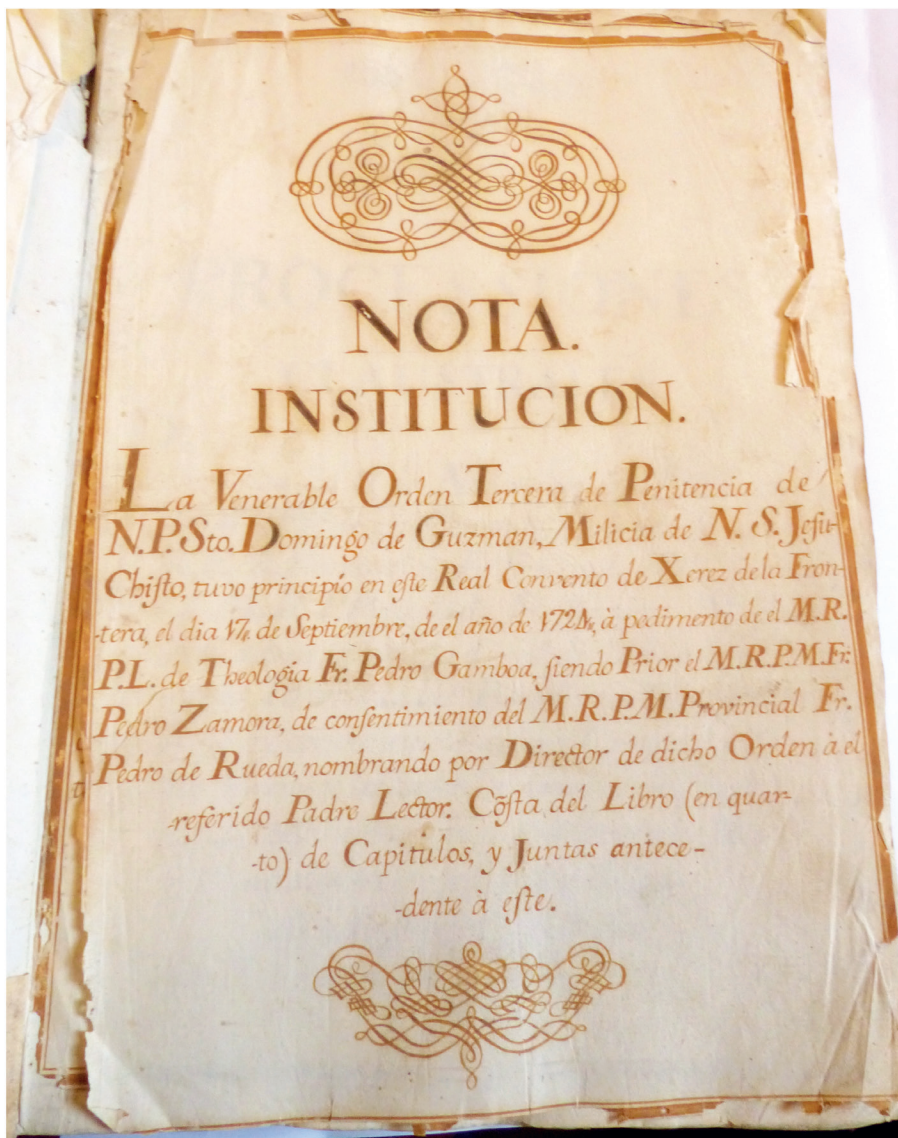 NOTA.
INSTITUCION.
La Venerable Orden Tercera de Penitencia de
N.P.Sto. Domingo de Guzman, Milicia de N. S. Jeſu-
Chiſto, tuvo principío en eſte Real Convento de Xerez de la Fron-
-tera, el dia 17. de Septiembre, de el año de 1724, à pedimento de el M.R.
P.L. de Theologia Fr. Pedro Gamboa, ſiendo Prior el M.R.P.M. Fr.
Pedro Zamora, de conſentimiento del M.R.P.M. Provincial Fr.
Pedro de Rueda, nombrando por Director de dicho Orden à el
-referido Padre Lector. Cõſta del Libro (en quar-
-to) de Capitulos, y Juntas antece-
-dente à eſte.